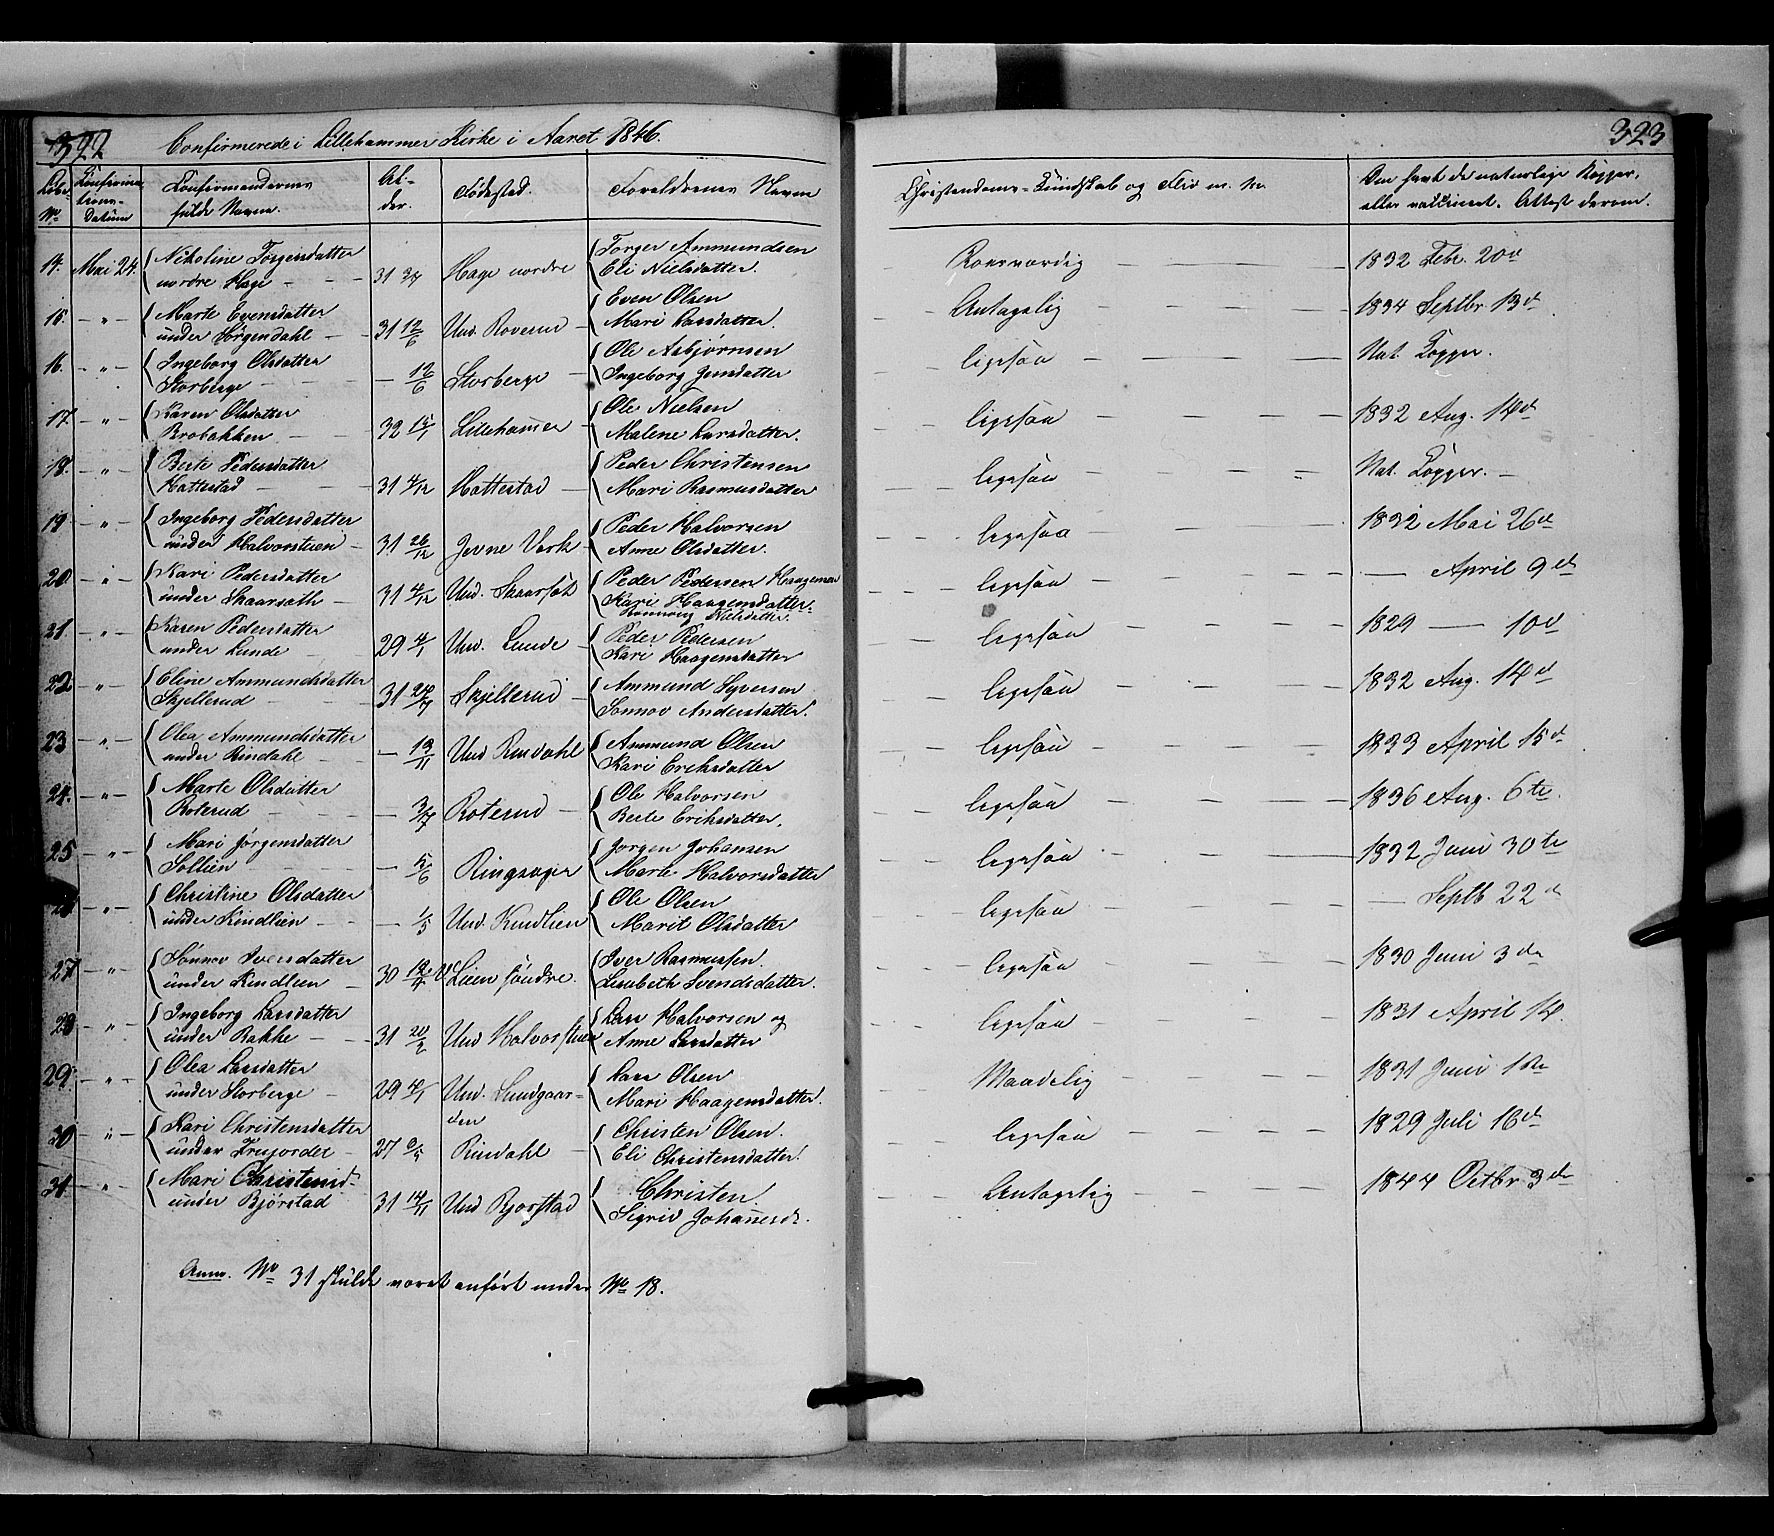 322
Confirmerede i Lillehammer Kirke i Aaret 1846.
Løbe No
Confirmations-Datum
Confirmandernes fulde Navne.
Alder.
Fødested.
Foræledrenes Navne
14. Mai 24. Nikoline Torgersdatter nordre Hage 31 Hage nordre Torger Ammundsen Eli Nielsdatter.
15. " Marte Evensdatter under Jørgendahl 31 12/6 Und. Roverud Even Olsen Mari Larsdatter.
16. " Ingeborg Olsdatter Storberge — 12/6 Storberge Ole Asbjørnsen Ingeborg Jensdatter
17. " Karen Olsdatter Brobakken 32 15/1 Lillehamer Ole Nielsen Malene Larsdatter.
18. " Berte Pedersdatter Hattestad 31 4/12 Hattestad Peder Christensen Mari Rasmusdatter
19 " Ingeborg Pedersdatter under Halvorstuen 31 26/12 Jevne Værk Peder Halvorsen Anne Olsdatter.
20. " Kari Pedersdatter under Skaarsæth 31 4/12 Und. Skaarsæt Peder Pedersen Haagensdatter Rønnoug Nielsdatter.
21. " Karen Pedersdatter under Lunde 29 4/1 Und. Lunde Peder Pedersen Kari Haagensdatter
22 " Eline Ammundsdatter Skjellerud 31 Skjellerud Ammund Syversen Sønnov Andersdatter.
23 " Olea Ammundsdatter under Rindahl — 19/11 Und Rindahl Ammund Olsen Kari Eriksdatter
24. " Marte Olsdatter Roterud — 3/7 Roterud Ole Halvorsen Berte Eriksdatter.
25 " Mari Jørgensdatter Sollien — 5/6 Ringsager Jørgen Johansen Marte Halvorsdatter
26 " Christine Olsdatter under Kindlien — 1/5 Und. Kindlien Ole Olsen Marit Olsdatter
27 " Sønnov Iversdatter under Kindlien 30 Lien søndre. Iver Rasmussen. Lisabeth Svendsdatter.
28 " Ingeborg Larsdatter under Bakke 31 20/2 Und Halvorstuen Lars Halvorsen og Anne Larsdatter
29 " Olea Larsdatter under Storberge 29 4/1 Und. Lundgaarden Lars Olsen Mari Haagensdatter.
30 " Kari Christensdatter under 27 Rindahl Christen Olsen. Eli Christensdatter.
31 " Mari Christensd. under Bjørstad 31 14/11 Und Bjørstad Christen Sigrid Johanesd.
Anm. No 31 skulde været anført under No 18.
323
Christendoms-Kundskab og Flid m. m.
Om havt de naturlige Kopper, eller vaccineret. Attest derom.
Roesværdig 1832 Febr. 20d
Antagelig 1834 Septbr 13d
ligesaa Nat. Kopper.
ligesaa 1832 Aug. 14d
ligesaa Nat. Kopper.
ligesaa 1832 Mai 26d
ligesaa — April 9d
ligesaa 1829 — 10d
ligesaa 1832 Aug. 14d
ligesaa 1833 April 15d
ligesaa 1836 Aug. 6te.
ligesaa 1832 Juni 30te
ligesaa — Septb 22d
ligesaa 1830 Juni 3die
ligesaa 1831 April 14.
Maadelig 1831 Juni 1ste
ligesaa 1829 Juli 16d
Antagelig 1844 Octbr 3die